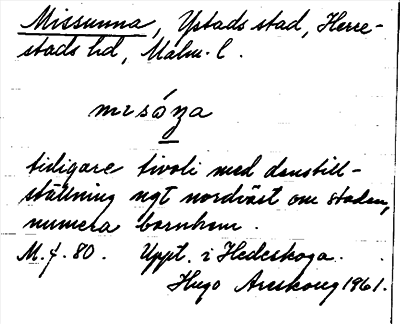 Missunna, Ystads stad, Herre-
stads hd, Malm. l.
tidigare tivoli med danstill-
ställning ngt nordväst om staden,
numera barnhem.
M. f. 80. Uppt. i Hedeskoga.
Hugo Areskoug 1961.